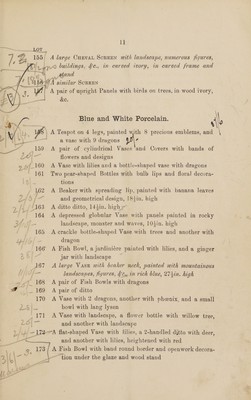 11
LOT
155 A large CHEVAL SCREEN with landscape, numerous figures,
buildings, &c., in carved ivory, in carved frame and
stand
156 A similar SCREEN
157 A pair of upright Panels with birds on trees, in wood ivory,
&c.
Blue and White Porcelain.
158 A Teapot on 4 legs, painted with 8 precious emblems, and
a vase with 9 dragons
159 A pair of cylindrical Vases and Covers with bands of
flowers and designs
160 A Vase with lilies and a bottle-shaped vase with dragons
161 Two pear-shaped Bottles with bulb lips and floral decora-
tions
162 A Beaker with spreading lip, painted with banana leaves
and geometrical design, 18½in. high
163 A ditto ditto, 14½in. high
164 A depressed globular Vase with panels painted in rocky
landscape, monster and waves, 10½in. high
165 A crackle bottle-shaped Vase with trees and another with
dragon
166 A Fish Bowl, a jardinière painted with lilies, and a ginger
jar with landscape
167 A large VASE with beaker neck, painted with mountainous
landscapes, figures, &c., in rich blue, 27½in. high
168 A pair of Fish Bowls with dragons
169 A pair of ditto
170 A Vase with 2 dragons, another with phœnix, and a small
bowl with lang lyson
171 A Vase with landscape, a flower bottle with willow tree,
and another with landscape
172 A flat-shaped Vase with lilies, a 2-handled ditto with deer,
and another with lilies, heightened with red
173 A Fish Bowl with band round border and openwork decora-
tion under the glaze and wood stand